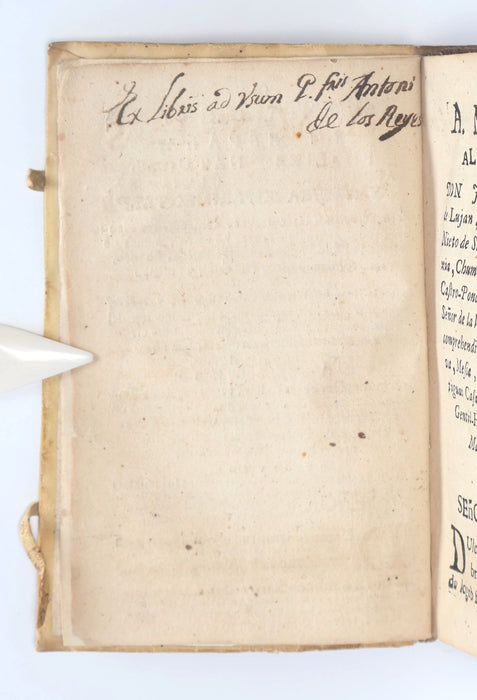 Ex Libris ad Usum P. fris Antoni
De los Reyes
A.
AL
DON
de Lujan
Nieto de S
xia, Chum
Castro-Ponc
Señor de la
comprehendi
va, Mesa,
tiguas Cas
Gentil-H
Ma
SEÑO
Dulc
br
do